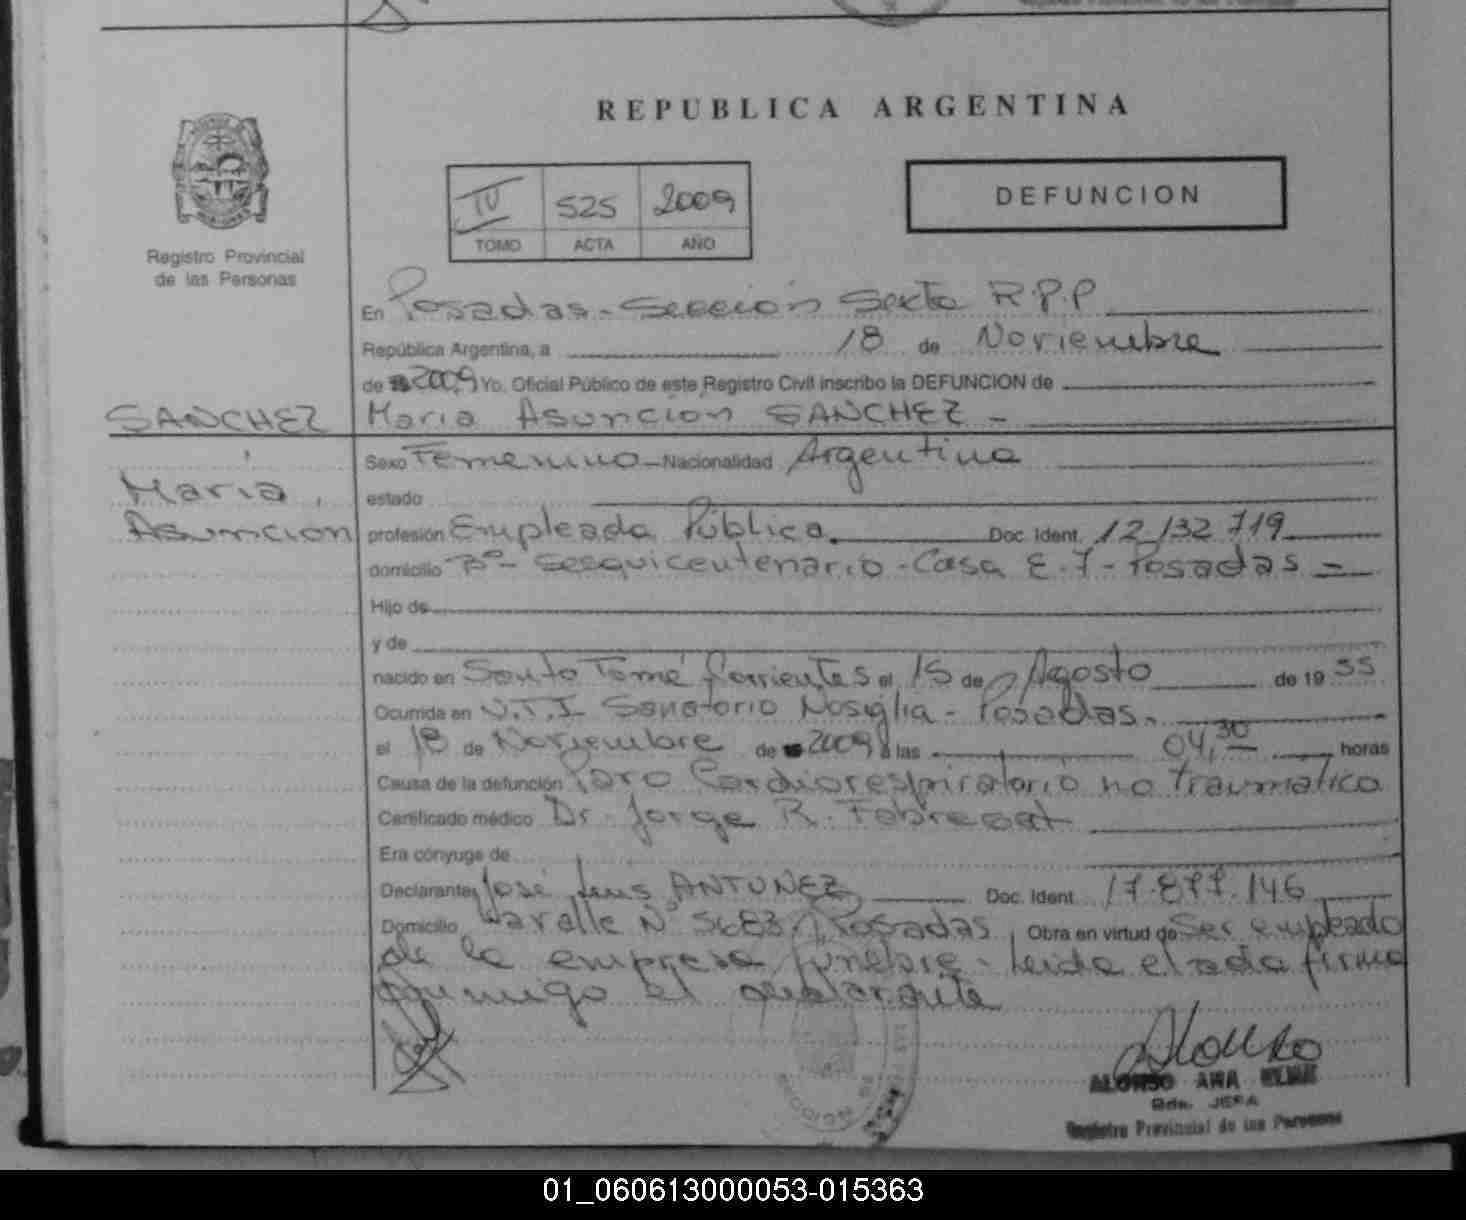 REPUBLICA ARGENTINA
IV 525 2009
TOMO ACTA AÑO
DEFUNCION
Registro Provincial
de las Personas
En Posadas - Sección Sexta R.P.P
República Argentina, a 18 de Noviembre
de 2009 Yo. Oficial Público de este Registro Civil inscribo la DEFUNCION de
SANCHEZ
María Asunción SANCHEZ -
María,
Asunción
Sexo Femenino - Nacionalidad Argentina
estado
profesión Empleada Pública. Doc. Ident. 12.132.719
domicilio Bº - Sesquicentenario - Casa E.7 - Posadas =
Hijo de
y de
nacido en Santo Tomé Corrientes el 15 de Agosto de 19 55
Ocurrida en U.T.I Sanatorio Nosiglia - Posadas.
el 18 de Noviembre de 2009 a las 04,30 horas
Causa de la defunción Paro Cardiorespiratorio no traumatico
Certificado médico Dr. Jorge R. Febrecat
Era cónyuge de
Declarante José Luis ANTUNEZ Doc. Ident. 17.877.146
Domicilio Lavalle Nº 5683 Posadas Obra en virtud de Ser empleado
de la empresa fúnebre - Leida el acta firma
conmigo el declarante
ALONSO ANA
Gde. JEFA
Registro Provincial de las Personas
01_060613000053-015363